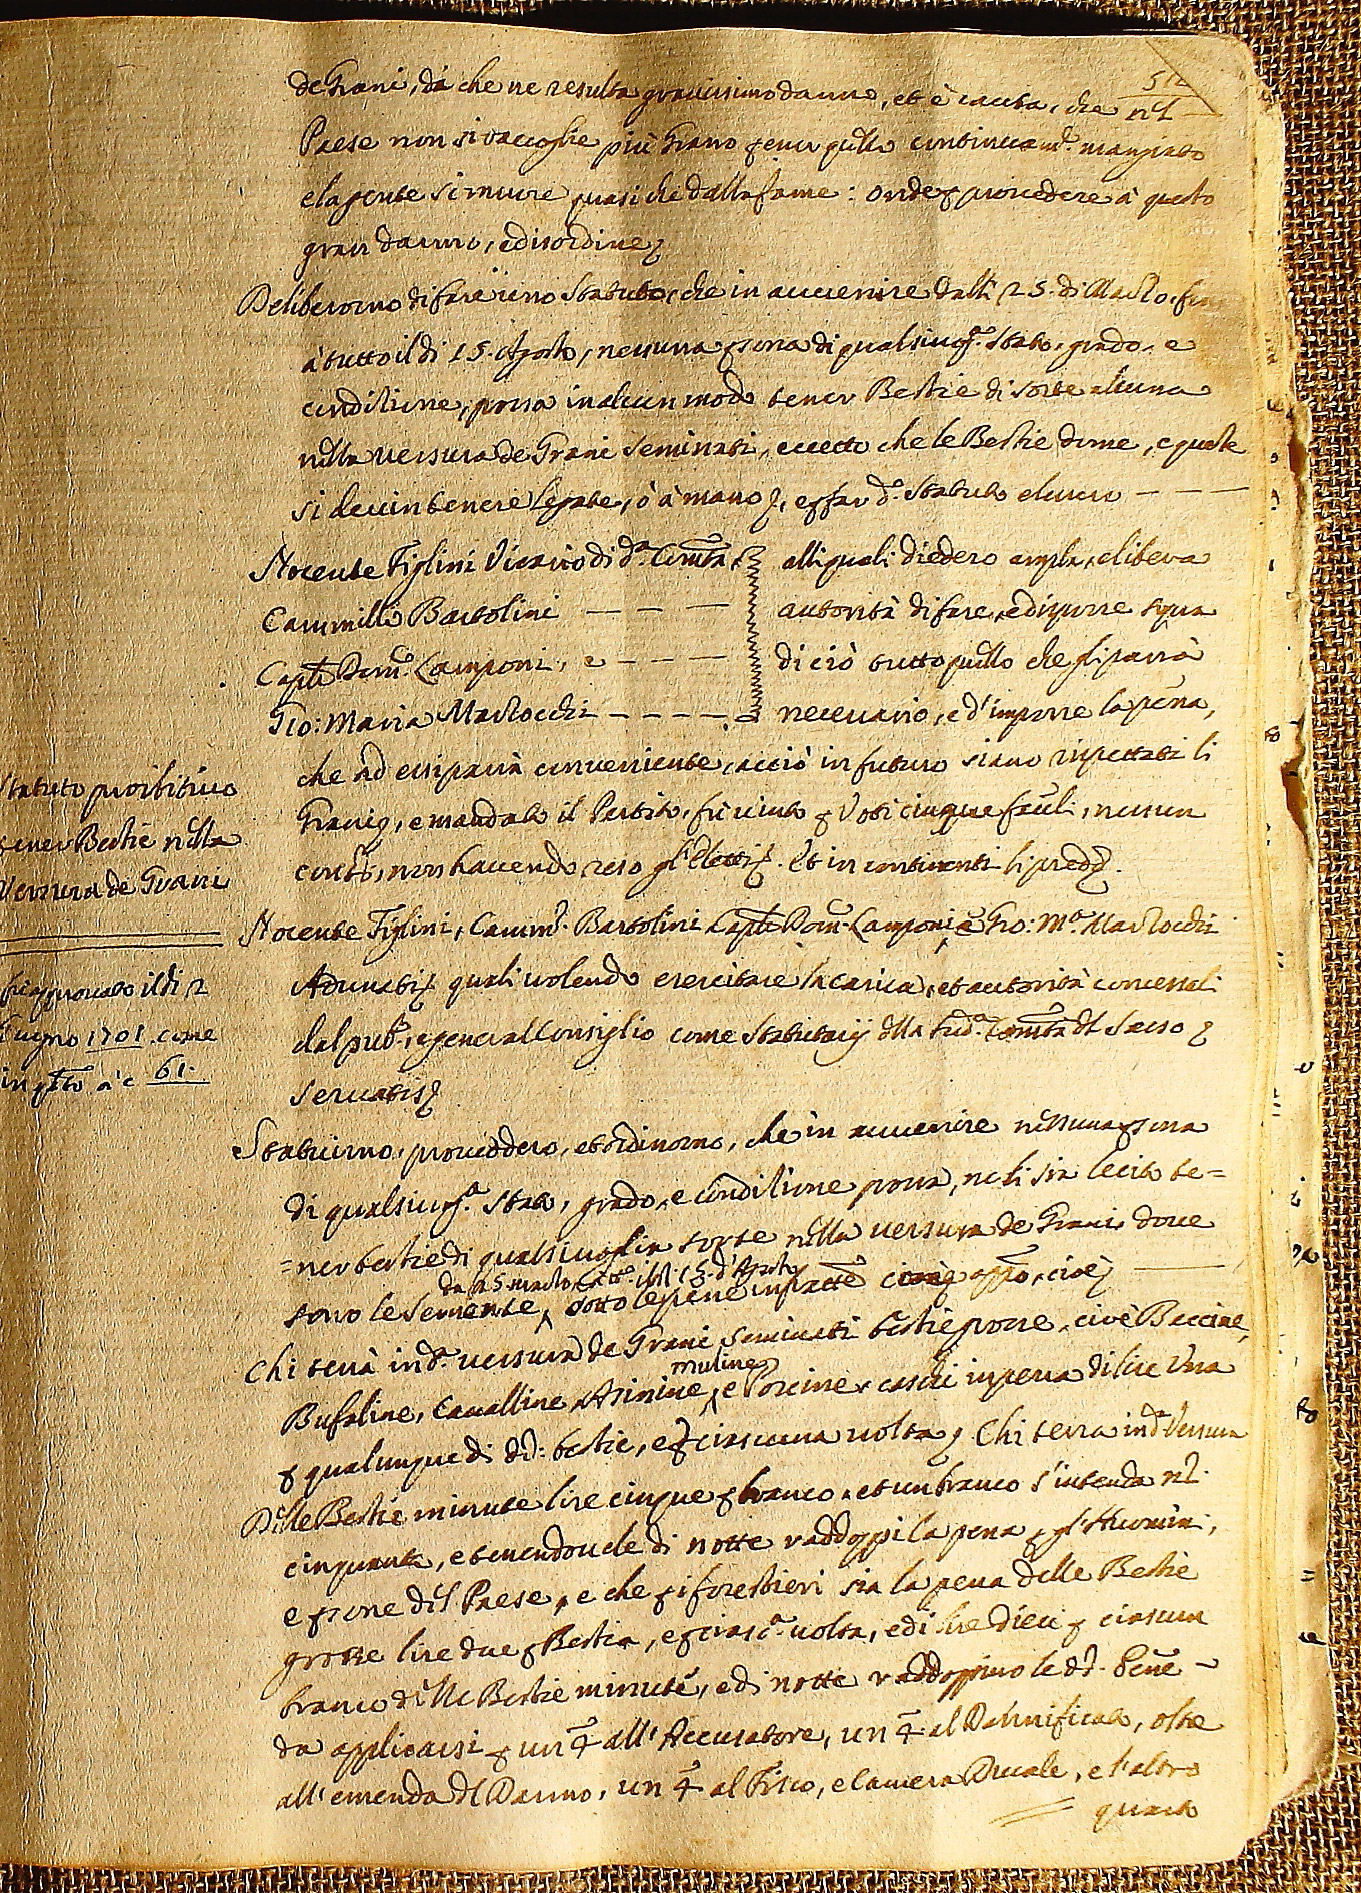 512
de Grani, dà che ne resulta gravissimo danno, et è causa, che nel
Paese non si raccoglie più Grano per esser quello continuam.te mangiato
e la gente si muore quasi che dalla fame: onde per provedere à questo
gran danno, e disordine
Deliberorno di fare uno Statuto, che in avvenire dalli 25. di Marzo, fin
à tutto il di 15. Agosto, nessuna persona di qualsivog.a stato, grado, e
conditione, possa in alcun modo tener Bestie di sorte alcuna
nella versura de Grani seminati, eccetto che le Bestie dome, e queste
si devin tenere legate, ò à mano, e per far d.o Statuto elessero
Nocente Figlini Vicario di d.a Com.tà
Cammillo Bartolini
Cap.n Dom.co Camponi, e
Gio: Maria Marzocchi
alli quali diedero ampla, e libera
autorità di fare, e disporre sopra
di ciò tutto quello che gli parrà
necessario, e d'imporre la pena,
che ad essi parrà conveniente, acciò in futuro siano rispettati li
Grani, e mandato il Partito, fù vinto per Voti cinque fav.li, nessun
cont.o, non havendo reso gl'Eletti. Et in continenti li pred.
Statuto proibitivo
tener Bestie nella
Versura de Grani
fu approvato il di 2
Giugno 1701. come
in q.to à c. 61.
Nocente Figlini, Camm.o Bartolini Cap.n Dom.co Camponi, e Gio: M.a Marzocchi
Adunati quali volendo esercitare la carica, et autorità concessali
dal pub.o, e general Consiglio come Statutarij della sud.a Com.tà del Sasso
servatis
Statuirno, proveddero, et ordinorno, che in avvenire nessuna persona
di qualsivog.a stato, grado, e conditione possa, ne li sia lecito te=
=ner bestie di qualsivoglia sorte nella versura de Grani dove
da 25. marzo, a tt.o il di 15. d'Agosto
sono le semente, sotto le pene infratte cioè appo, cioè
Chi terrà in d.a versura de Grani seminati bestie grosse, cioè Baccine,
muline
Bufaline, Cavalline, Asinine, e Porcine caschi in pena di lire Una
per qualunque di dd. bestie, e per ciascuna volta, Chi terrà in d.a Versura
Delle Bestie minute lire cinque per branco, et un branco s'intenda nel
cinquanta, e tenendovele di notte raddoppi la pena per gl'Huomini,
e persone del Paese, e che per i forestieri sia la pena delle Bestie
grosse lire due per Bestia, e per ciasc.a volta, e di lire dieci per ciascun
branco delle Bestie minute, e di notte raddoppino le dd. Pene
da applicarsi per un 4.o all'Accusatore, un 4.o al Dannificato, oltre
all'emenda del Danno, un 4.o al Fisco, e Camera Ducale, e l'altro
quarto